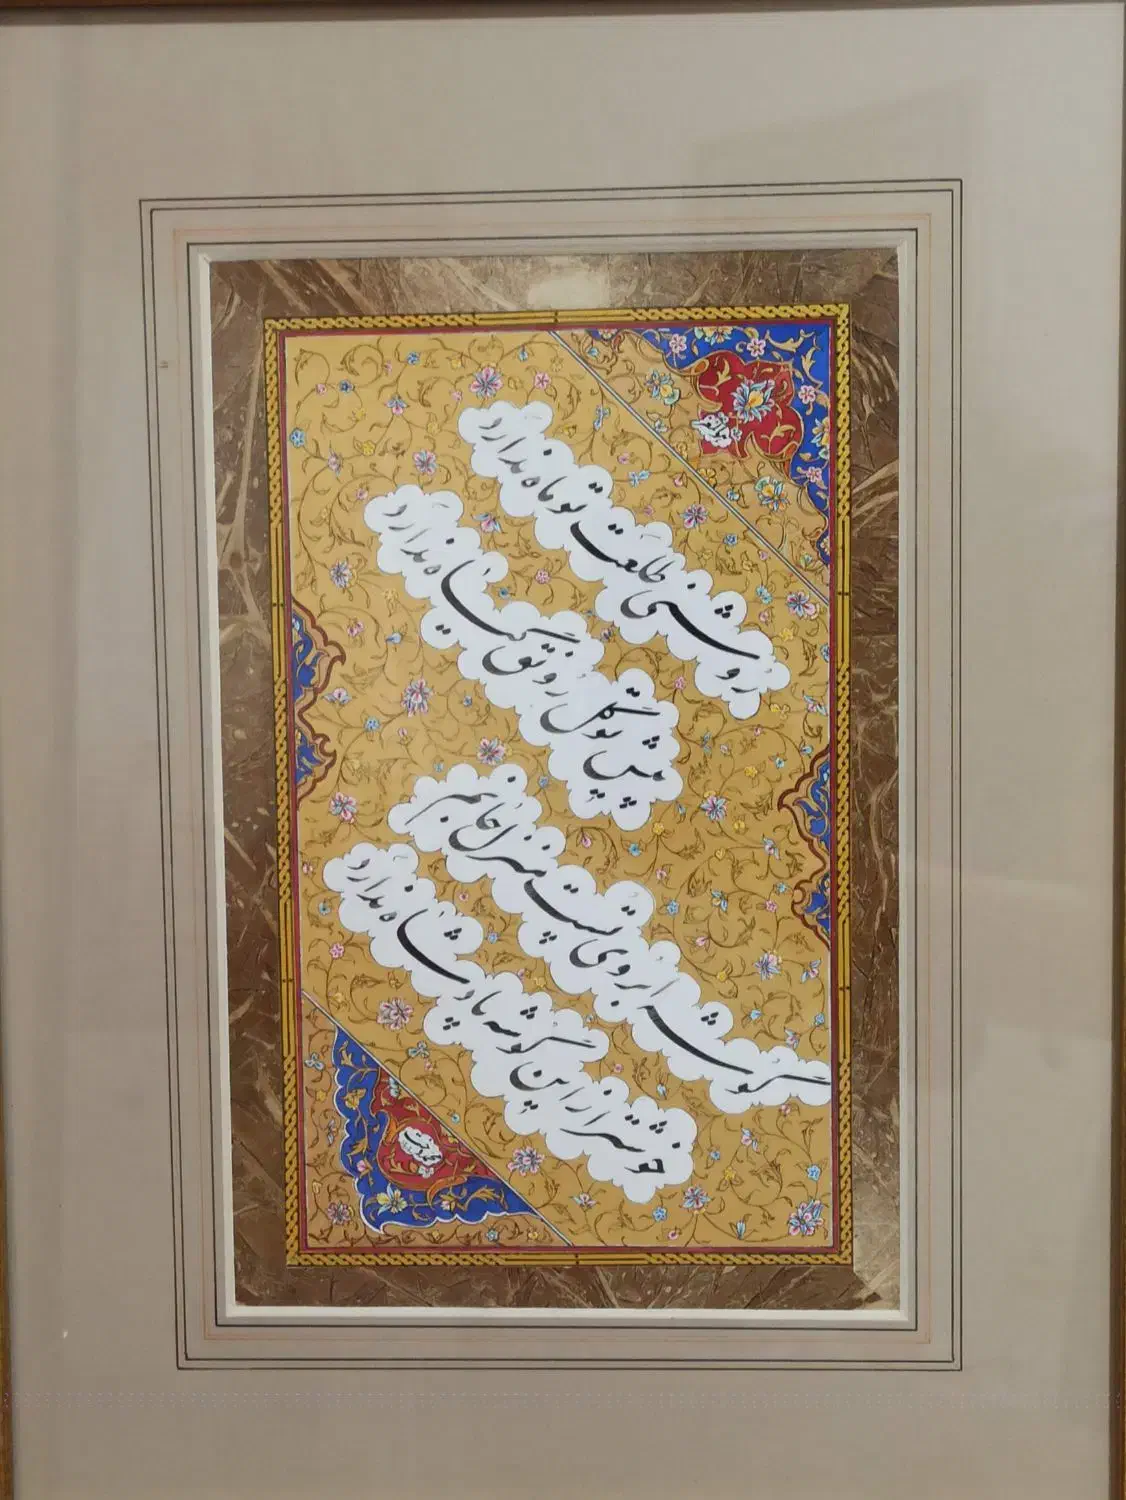 روشنی طلعت تو ماه ندارد
پیش تو گل رونق گیاه ندارد
گوشه ابروی تست منزل جانم
خوشتر از این گوشه پادشاه ندارد